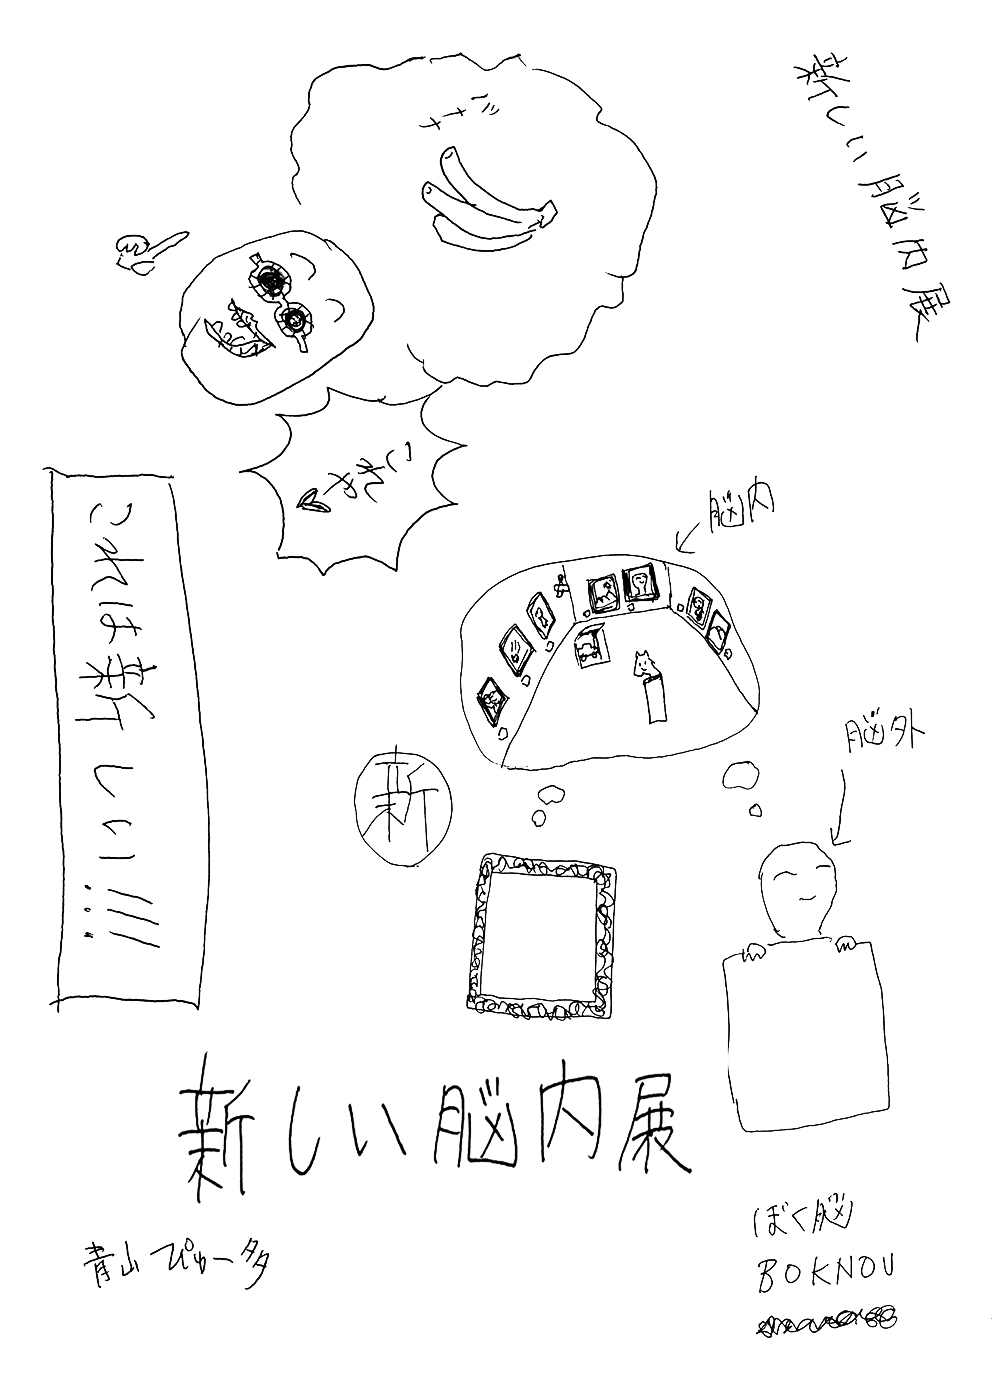 新しい脳内展
バナナ
きれい
これは新しい!!!
脳内
脳外
新
新しい脳内展
青山ぴゅー多
ぼく脳
BOKNOU